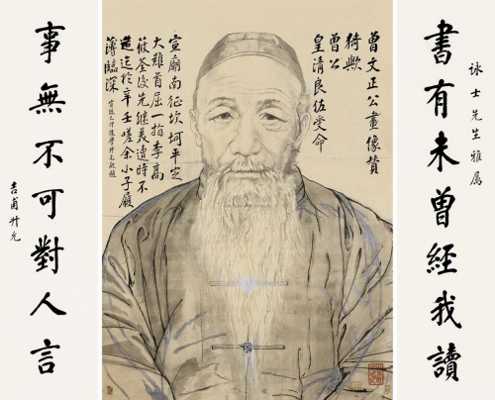 書有未曾經我讀
詠士先生雅屬
曾文正公畫像贊
猗歟
曾公
皇清良佐受命
宣廟南征坎坷平定
大難首屈一指李高
筱荃後先継美遭時不
造迄於辛壬嗟余小子履
薄臨深
後學升允敬題
事無不可對人言
吉甫升允